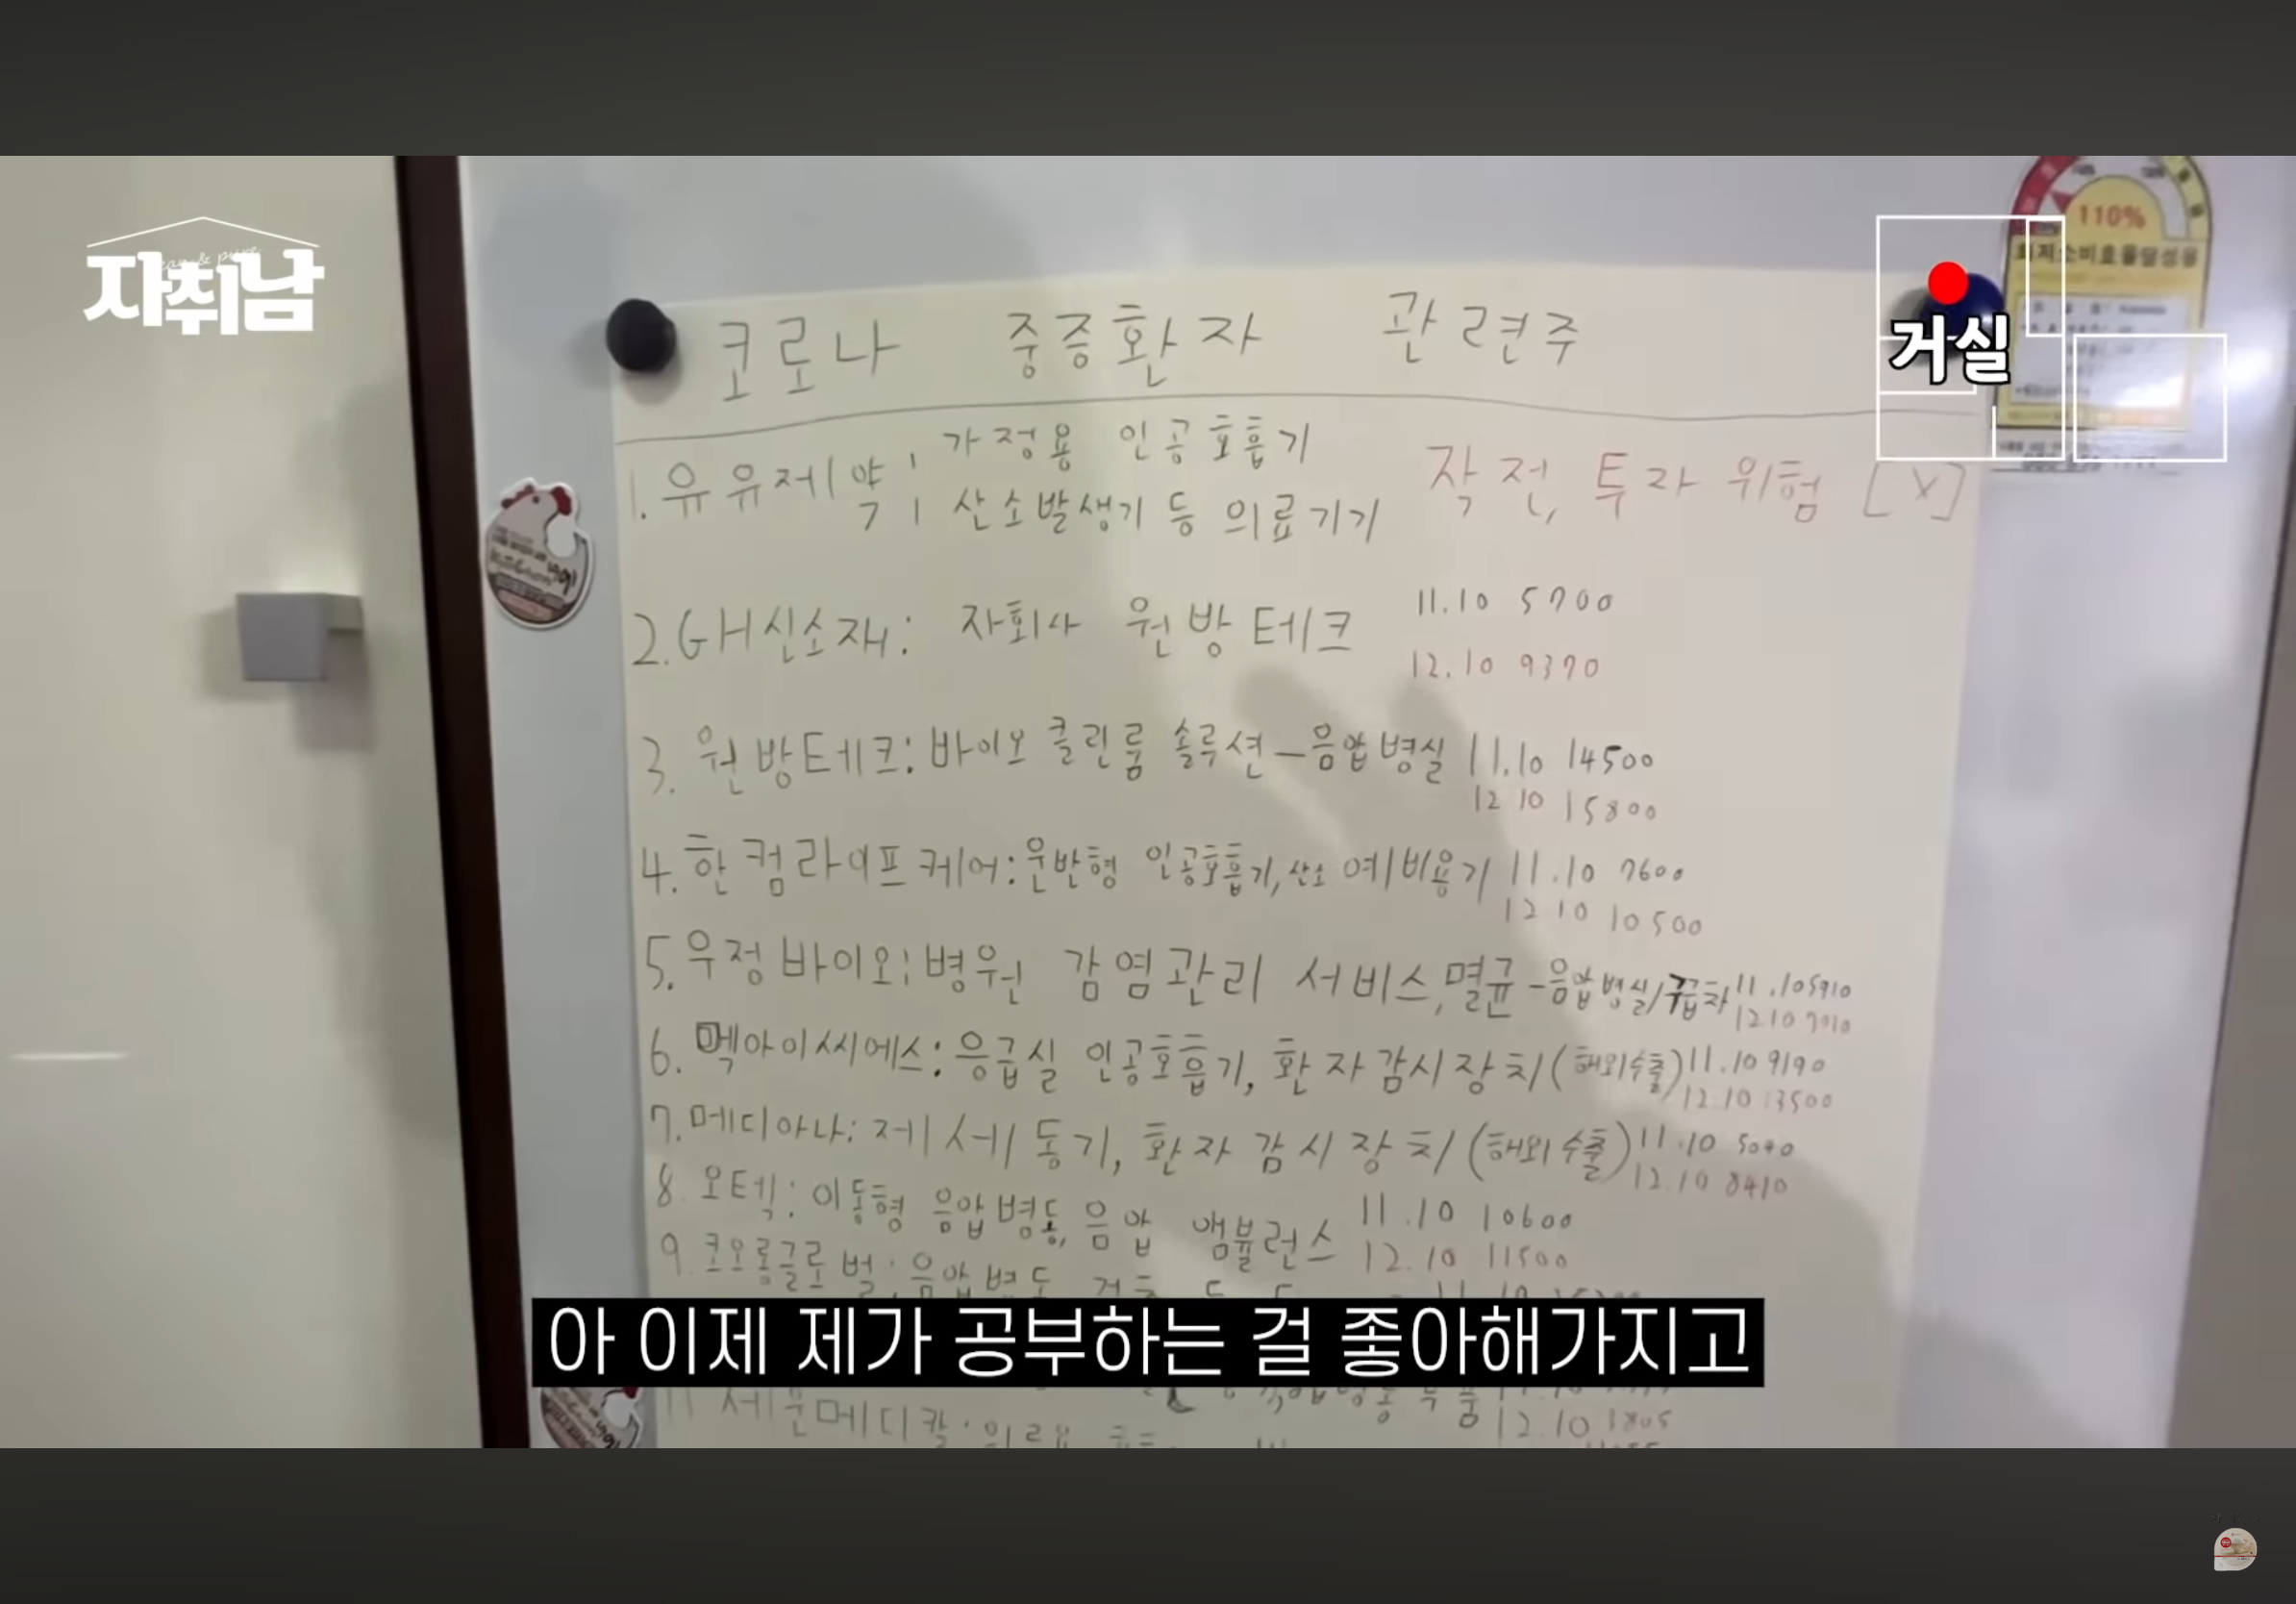 자취남
거실
110%
코로나 중증환자 관련주
1. 유유제약: 가정용 인공호흡기
산소발생기 등 의료기기
작전, 투자 위험 [X]
2. GH신소재: 자회사 원방테크 11.10 5700
12.10 9370
3. 원방테크: 바이오 클린룸 솔루션-음압병실 11.10 14500
12 10 15800
4. 한컴라이프케어: 운반형 인공호흡기, 산소 예비용기 11.10 7600
12 10 10500
5. 우정바이오: 병원 감염관리 서비스, 멸균-음압병실/구급차 11.10 5910
12 10
6. 멕아이씨에스: 응급실 인공호흡기, 환자감시장치(해외수출) 11.10 9190
12.10
7. 메디아나: 제세동기, 환자감시장치(해외수출) 11.10
12.10 8410
8. 오텍: 이동형 음압병동, 음압 앰뷸런스 11.10 10600
12.10 11500
9. 코오롱글로벌: 음압병동
아 이제 제가 공부하는 걸 좋아해가지고
12.10 3805
11 세운메디칼: 의료용